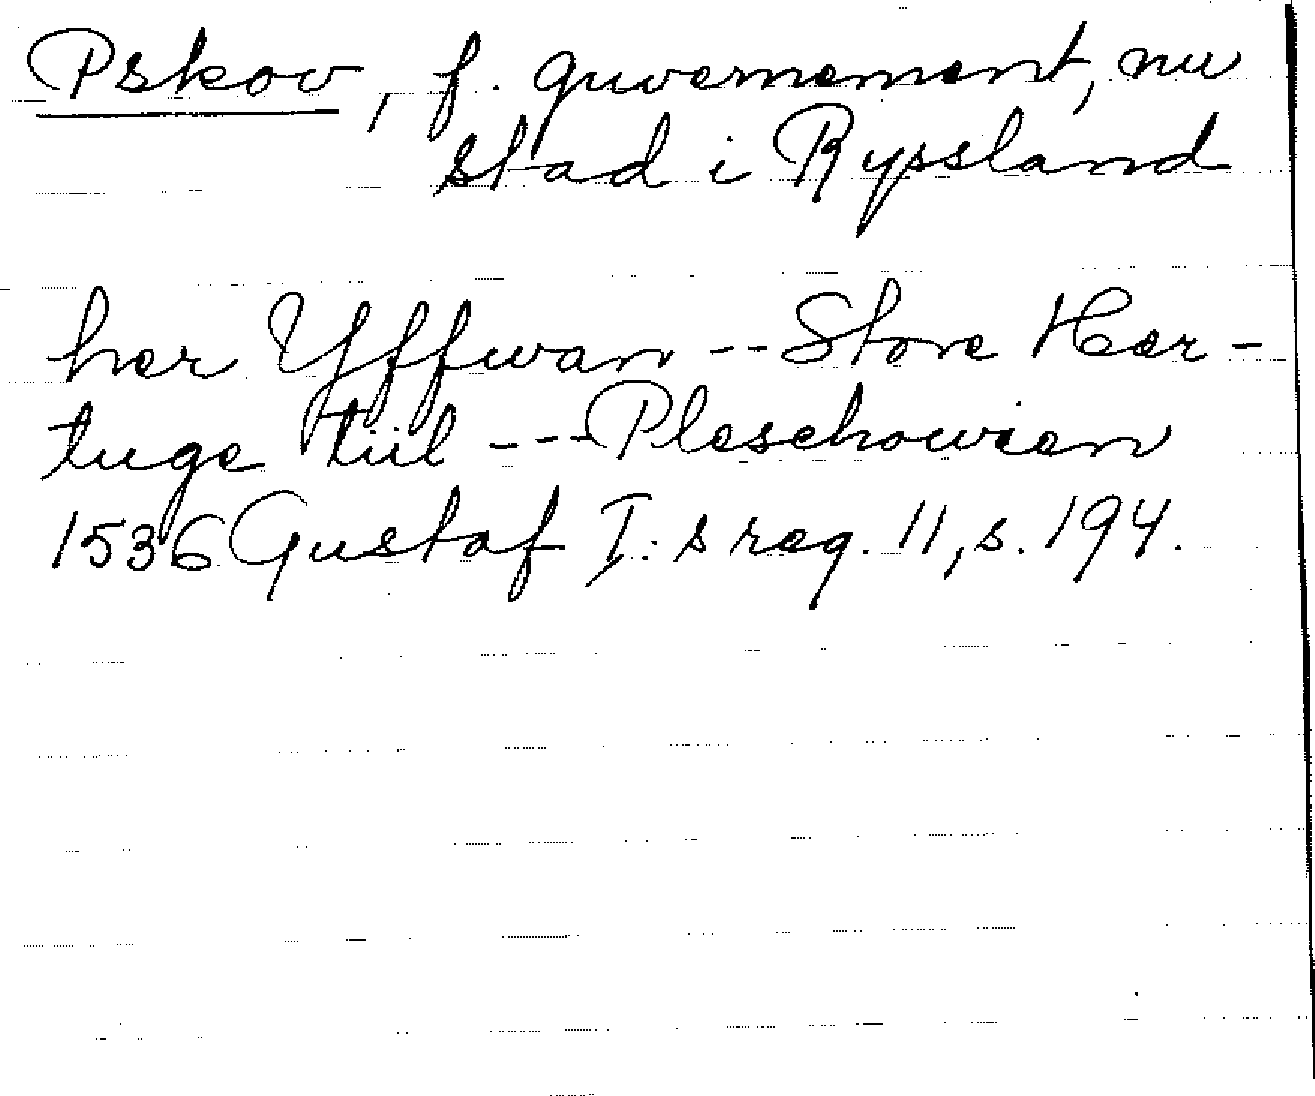 Pskov, f. guvernement, nu
stad i Ryssland
her Yffwan -- Store Her-
tuge tiil --- Pleschowien
1536 Gustaf I:s reg. 11, s. 194.